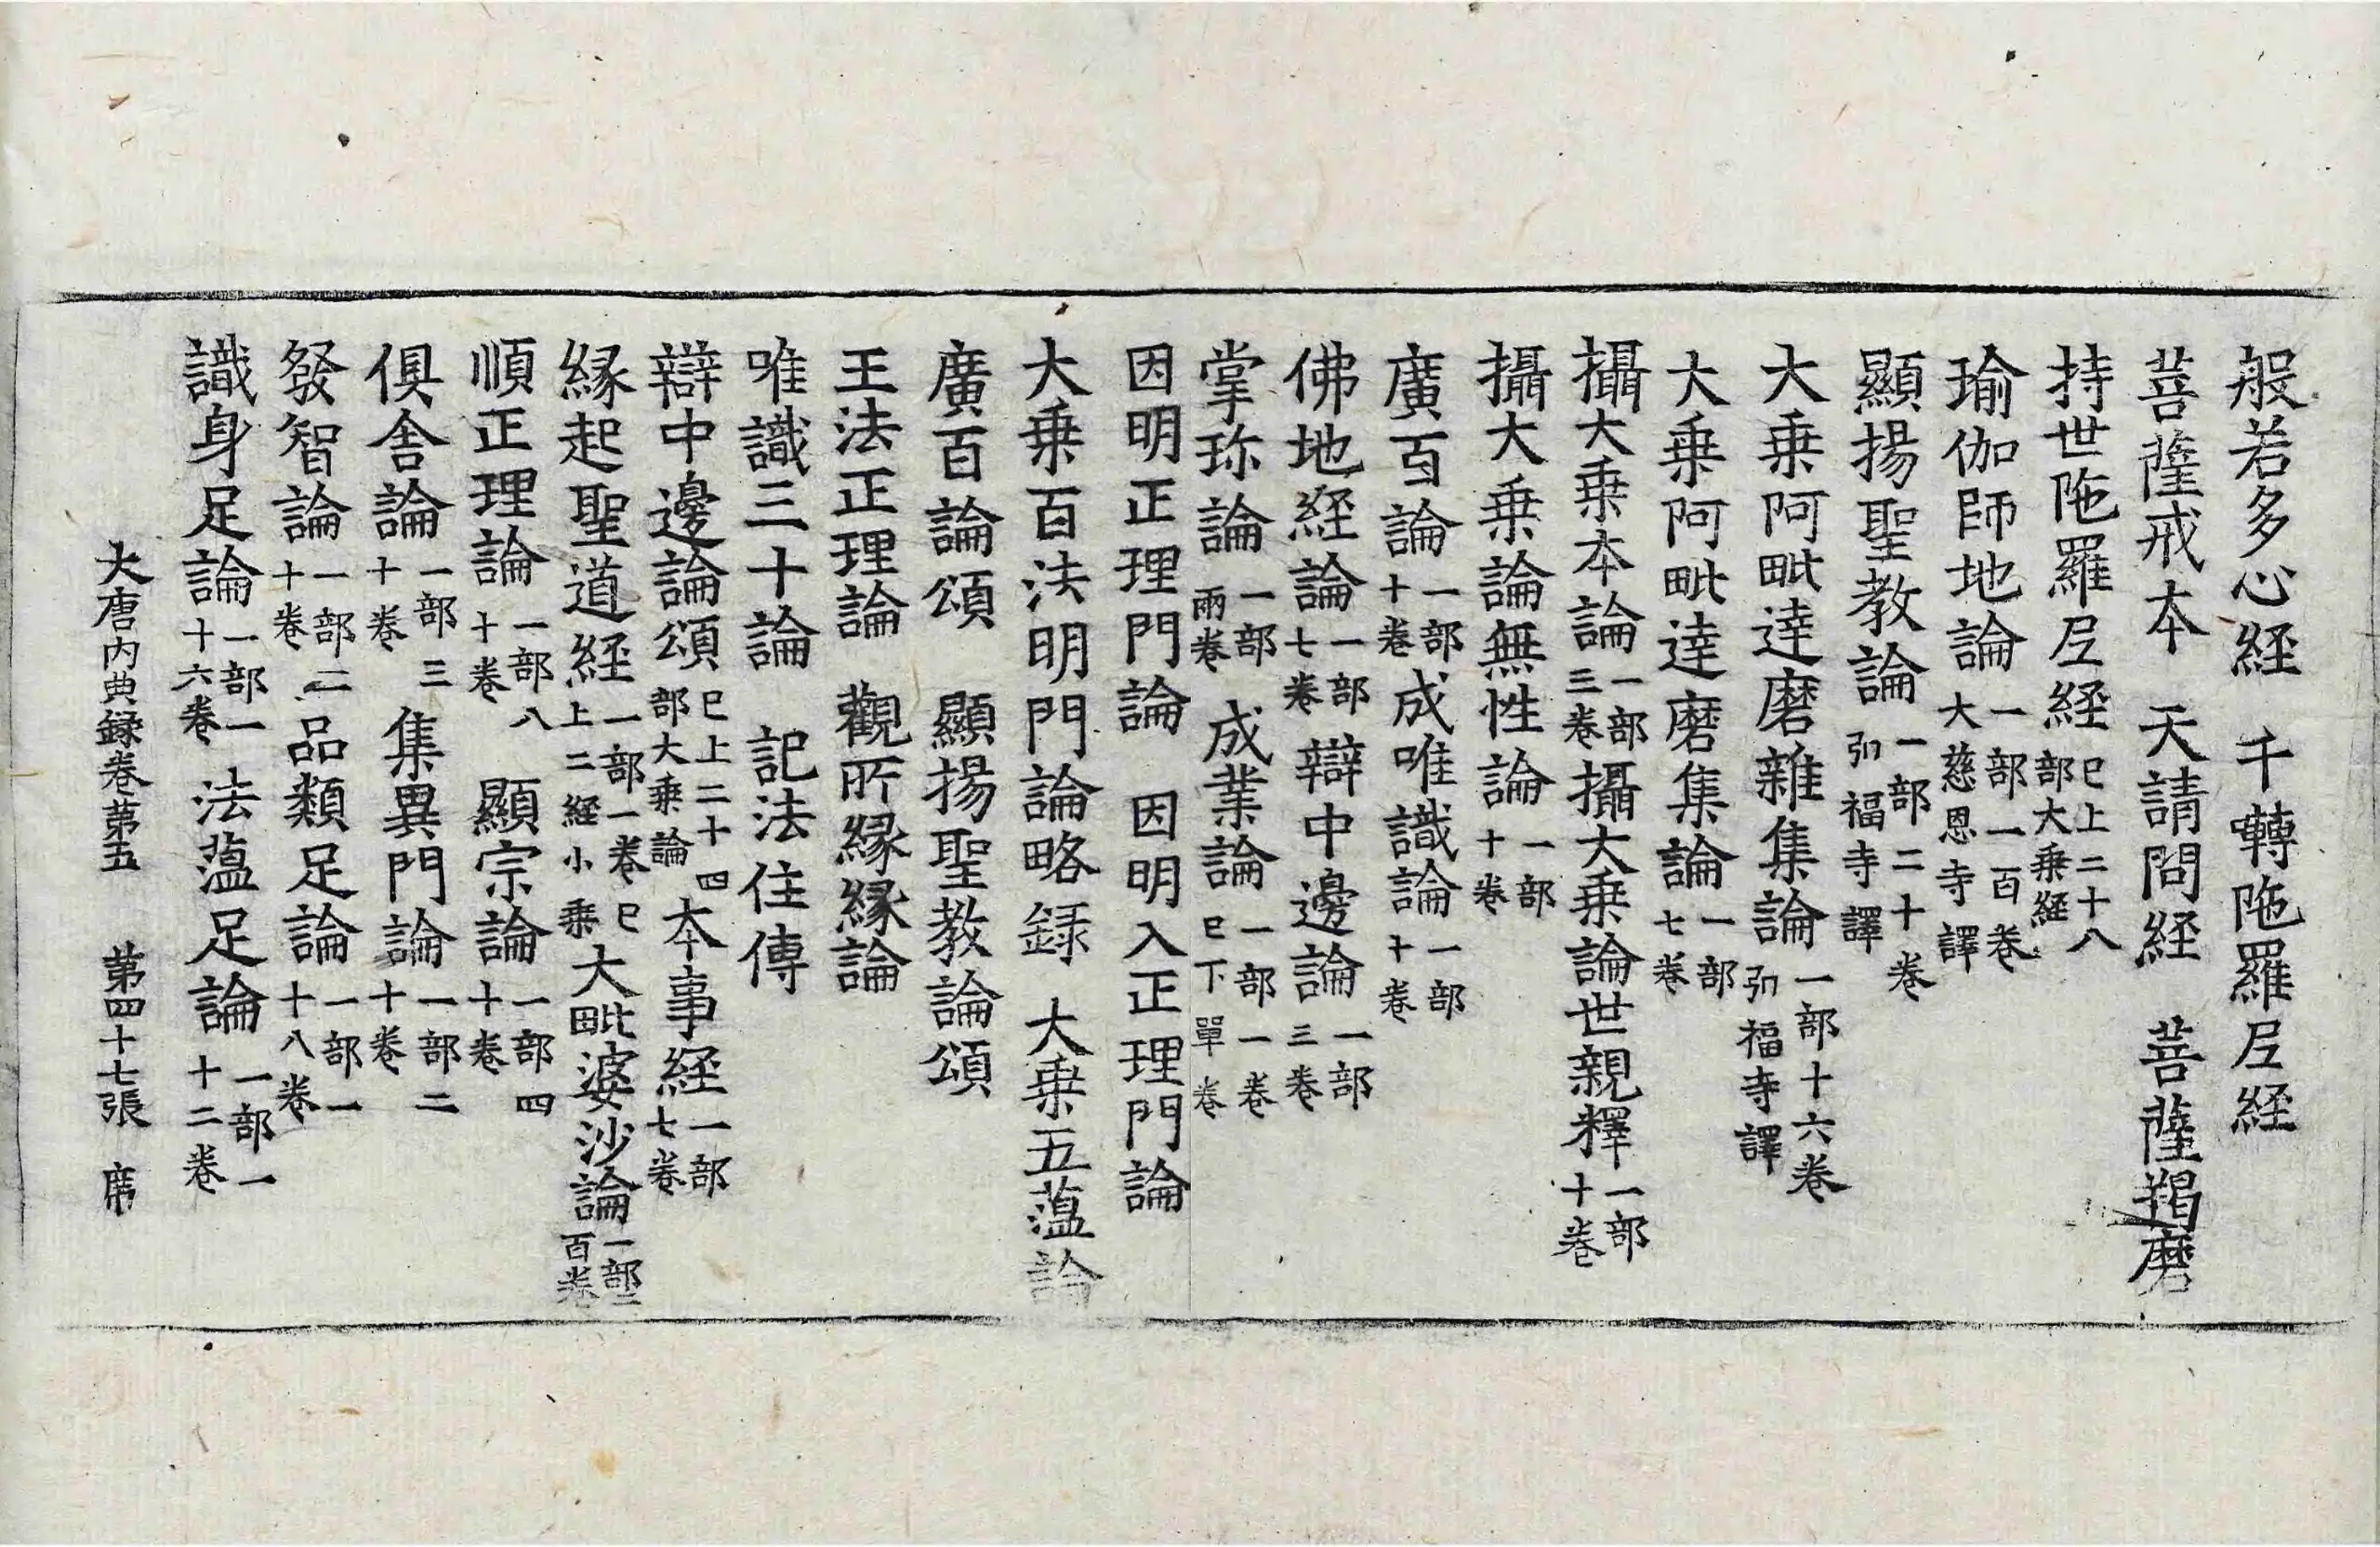 般若多心経　千囀陁羅𡰱経
菩薩戒本　天請問経　菩薩羯磨
持世陁羅𡰱経巳上二十八部大乗経
瑜伽師地論一部一百卷大慈恩寺譯
顯揚聖教論一部二十卷弘福寺譯
大乗阿毗達磨雜集論一部十六卷弘福寺譯
大乗阿毗達磨集論一部七卷
攝大乗本論一部三卷攝大乗論世親釋一部十卷
攝大乗論無性論一部十卷
廣百論一部十卷成唯識論一部十卷
佛地経論一部七卷辯中邊論一部三卷
掌珎論一部兩卷　成業論一部一卷巳下單卷
因明正理門論　因明入正理門論
大乗百法明門論略録　大乗五蕰論
廣百論頌　顯揚聖教論頌
王法正理論　觀所縁縁論
唯識三十論　記法住傳
辯中邊論頌巳上二十四部大乗論本事経一部七卷
縁起聖道経一部一卷巳上二経小乗大毗婆沙論一部二百卷
順正理論一部八十卷　顯宗論一部四十卷
俱舎論一部三十卷　集異門論一部二十卷
發智論一部二十卷　品類足論一部一十八卷
識身足論一部一十六卷　法蕰足論一部一十二卷
大唐内典録卷苐五　苐四十七張　席